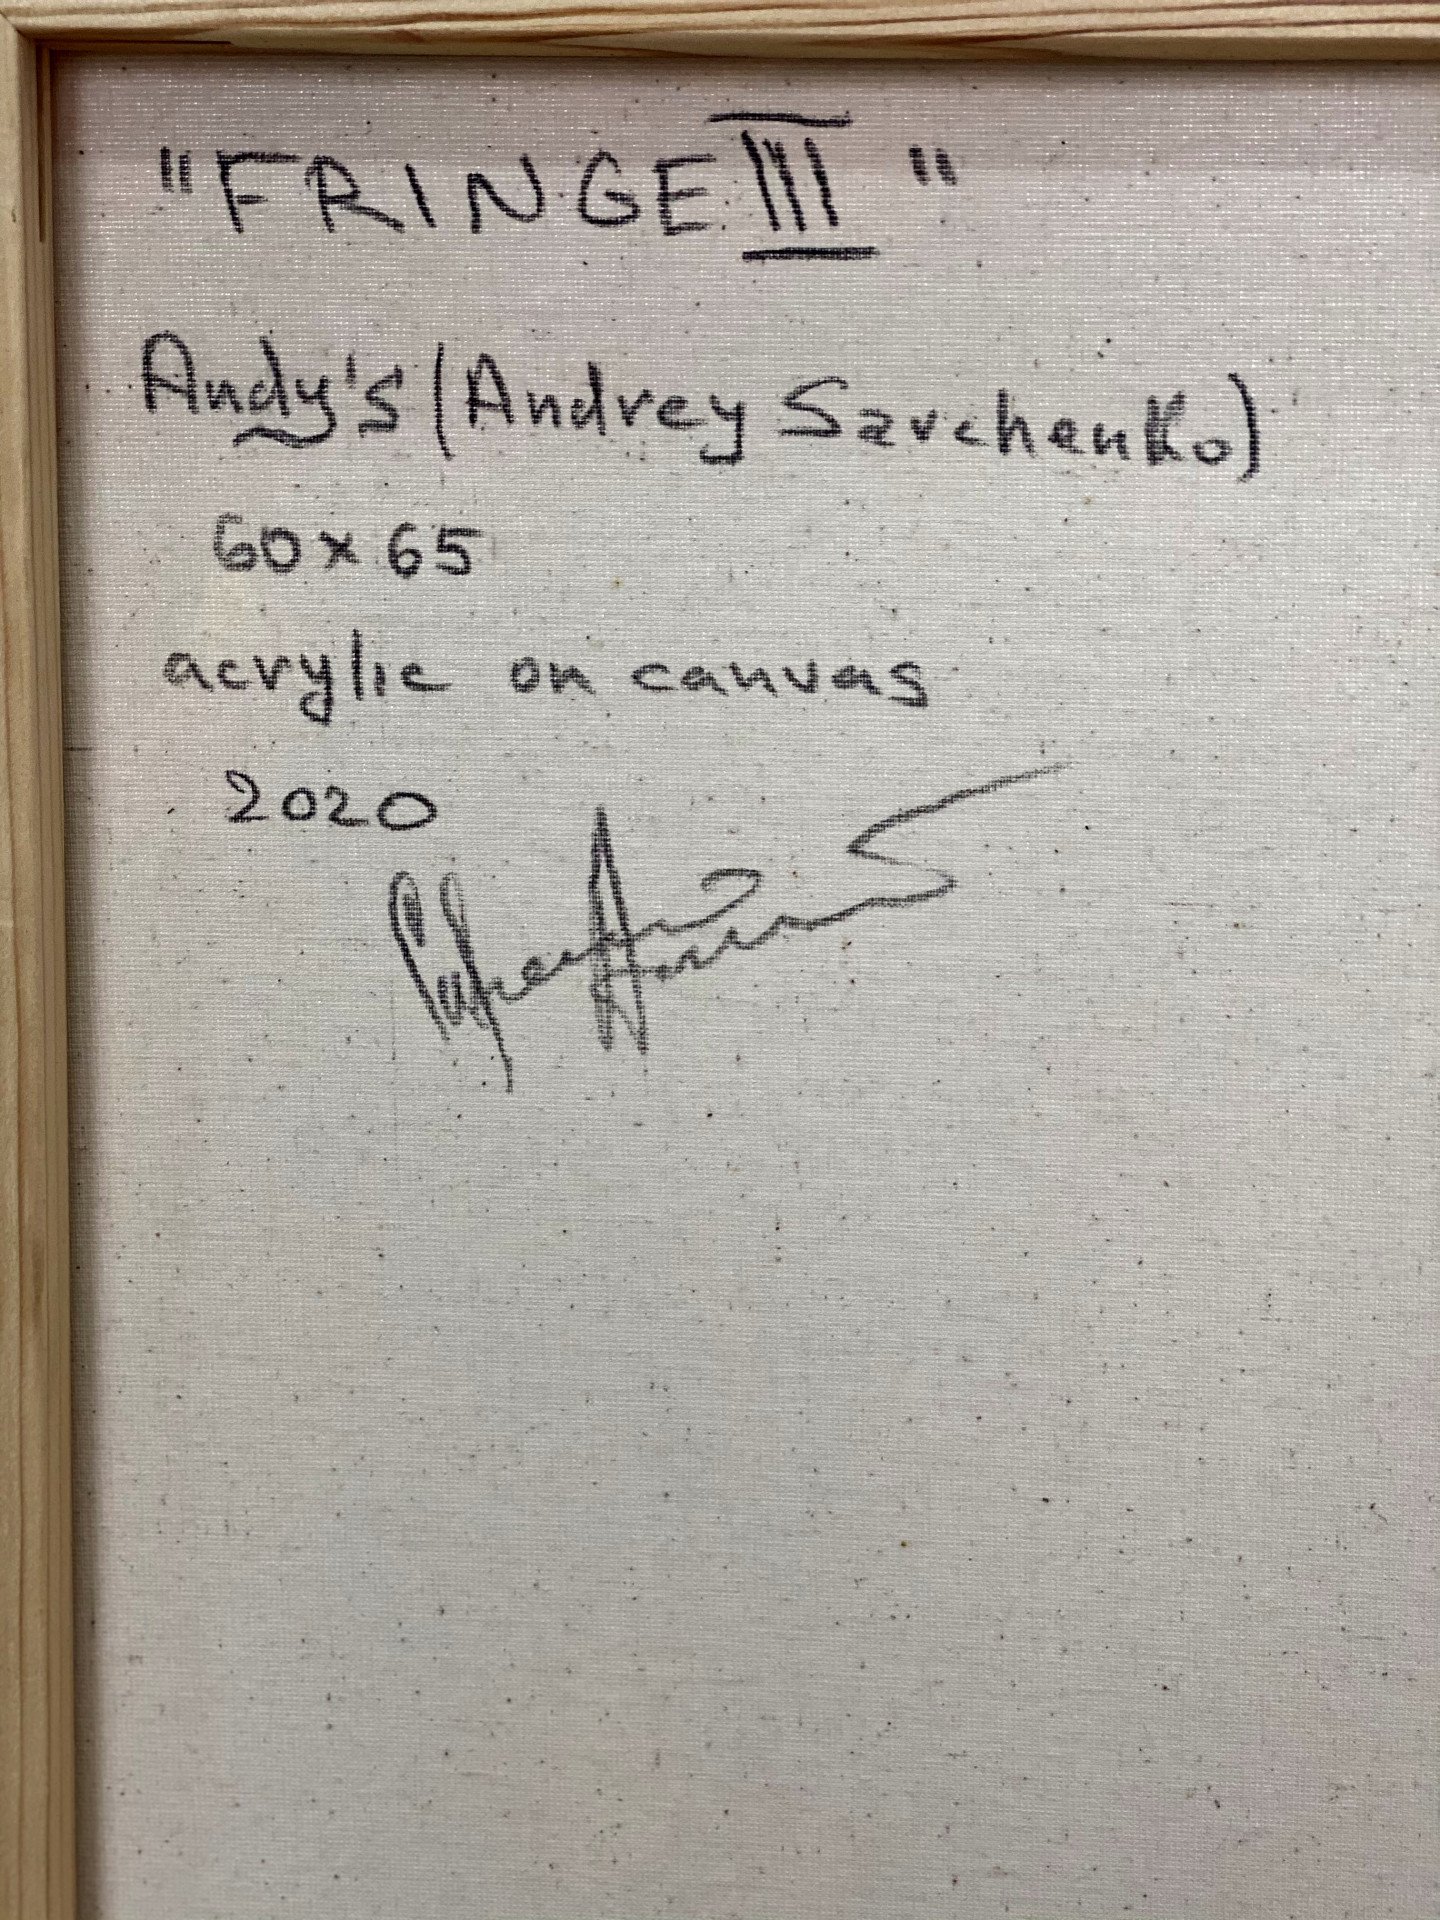 "FRINGE III"
Andy's (Andrey Savchenko)
60x65
acrylic on canvas
2020